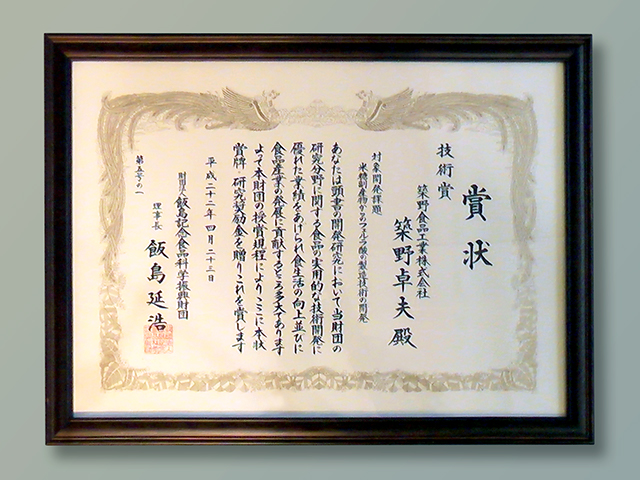 賞状
技術賞
築野食品工業株式会社
築野卓夫殿
対象開発課題
米糠副産物からのフェルラ酸の製造技術の開発
あなたは頭書の開発研究において当財団の
研究分野に関する食品の実用的な技術開発に
優れた業績をあげられ食生活の向上並びに
食品産業の発展に貢献するところ多大であります
よって本財団の授賞規程によりここに本状
賞牌・研究奨励金を贈りこれを賞します
平成二十二年四月二十三日
財団法人飯島記念食品科学振興財団
理事長 飯島延浩
第五号の一